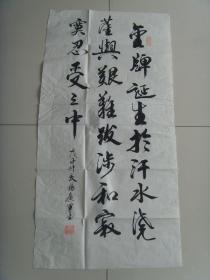 金牌诞生於汗水浇
灌與艰難跋涉和寂
寞忍受之中